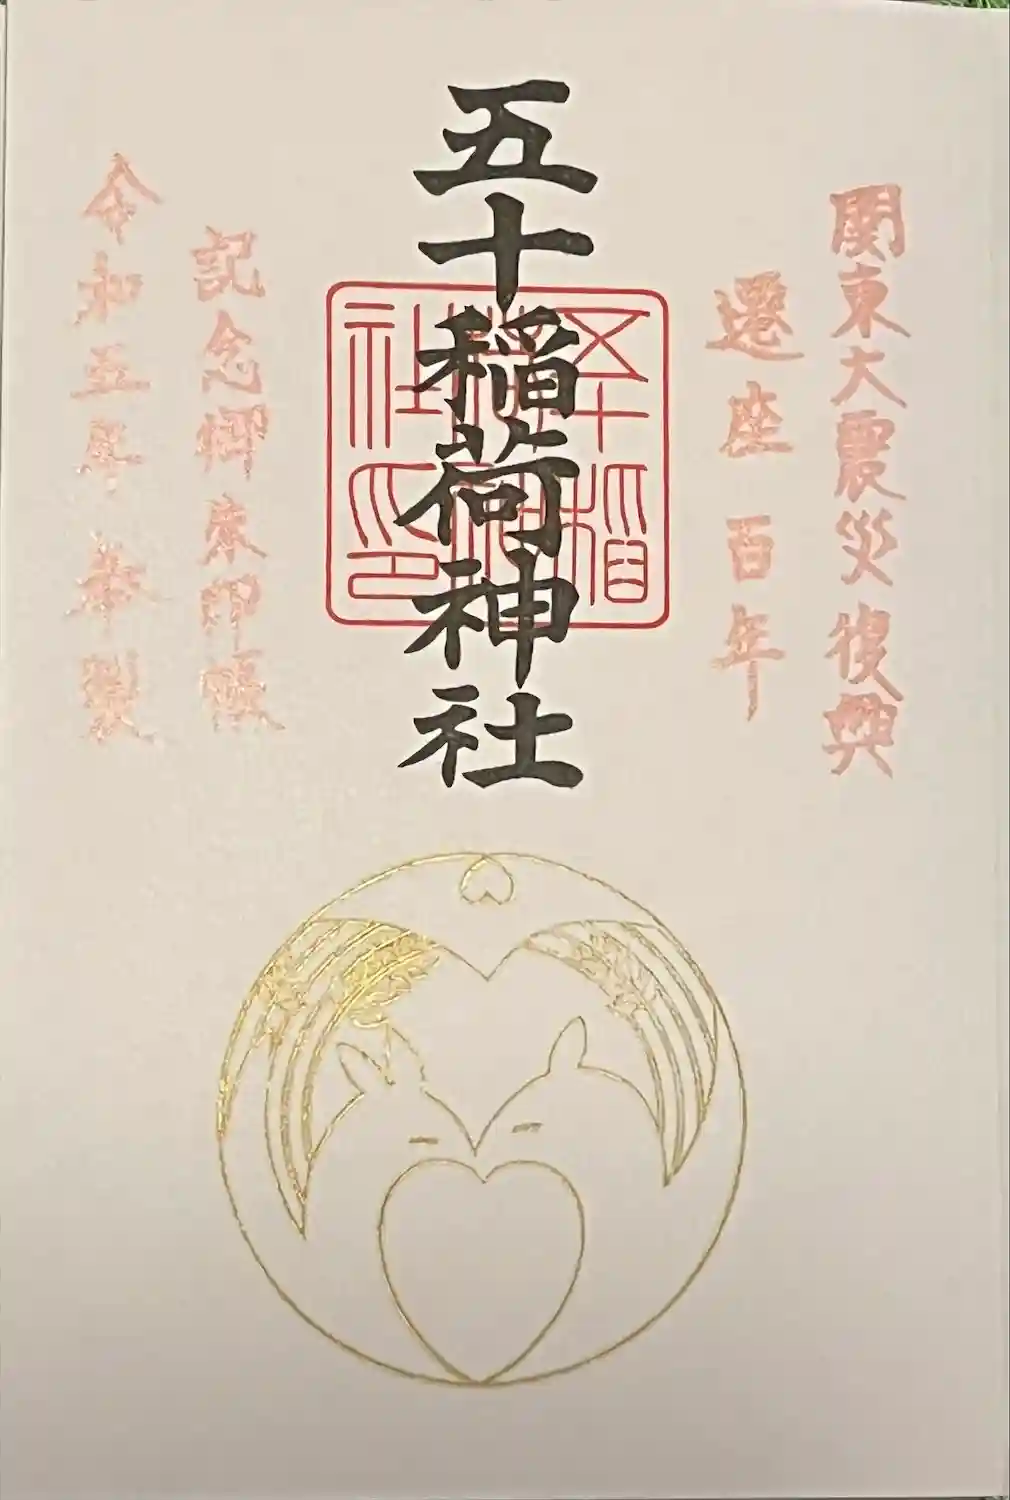 関東大震災復興
遷座百年
五十稲荷神社
五十稲荷神社印
記念御朱印帳
令和五年奉製